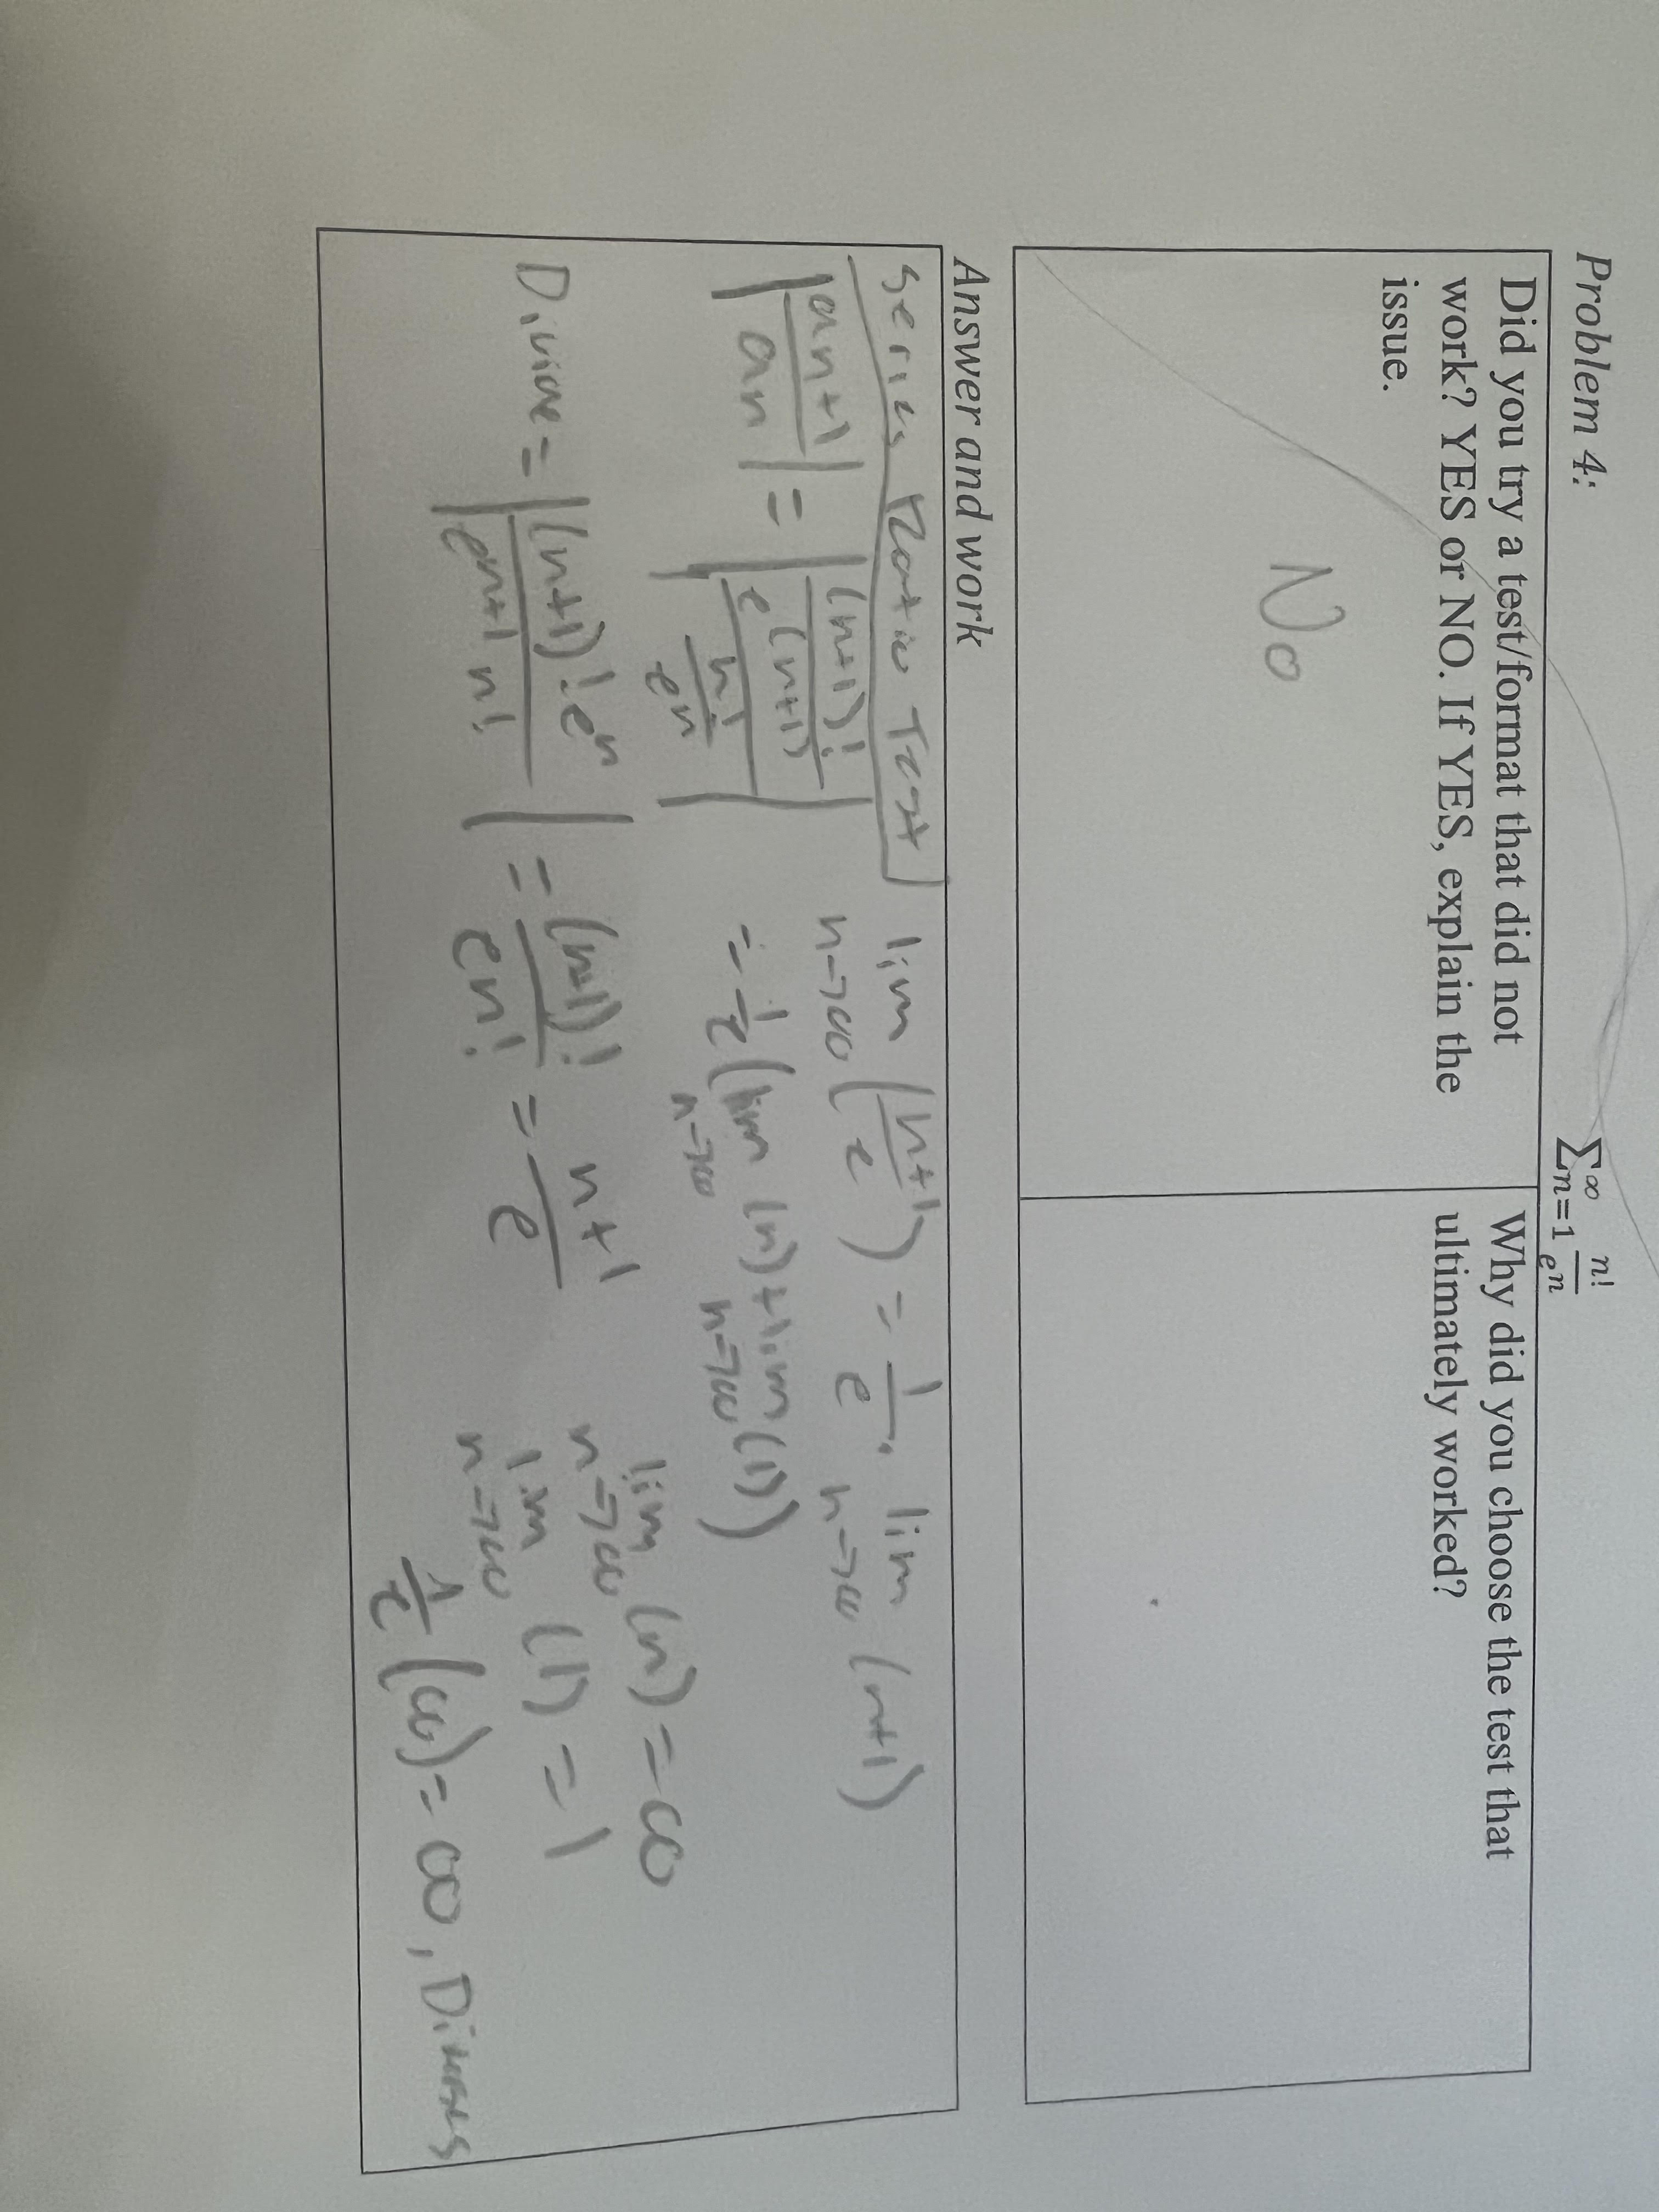 Problem 4:
∑ₙ₌₁^∞ n!/eⁿ
Did you try a test/format that did not
work? YES or NO. If YES, explain the
issue.
Why did you choose the test that
ultimately worked?
No
Answer and work
Series Ratio Test
|an+1/an| = |((n+1)!/e^(n+1))/(n!/eⁿ)|
Divide = |(n+1)! eⁿ/(eⁿ⁺¹ n!)| = (n+1)!/(en!) = n+1/e
lim n→∞ (n+1/e) = 1/e · lim n→∞ (n+1)
= 1/e (lim n→∞ (n) + lim n→∞ (1))
lim n→∞ (n) = ∞
lim n→∞ (1) = 1
1/e (∞) = ∞, Diverges